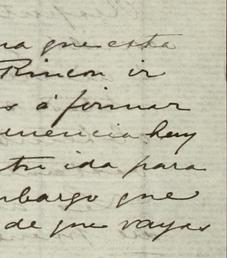 na que esta
Rincon ir
s á firmar
uencia hay
tu ida para
mbargo que
de que vayas